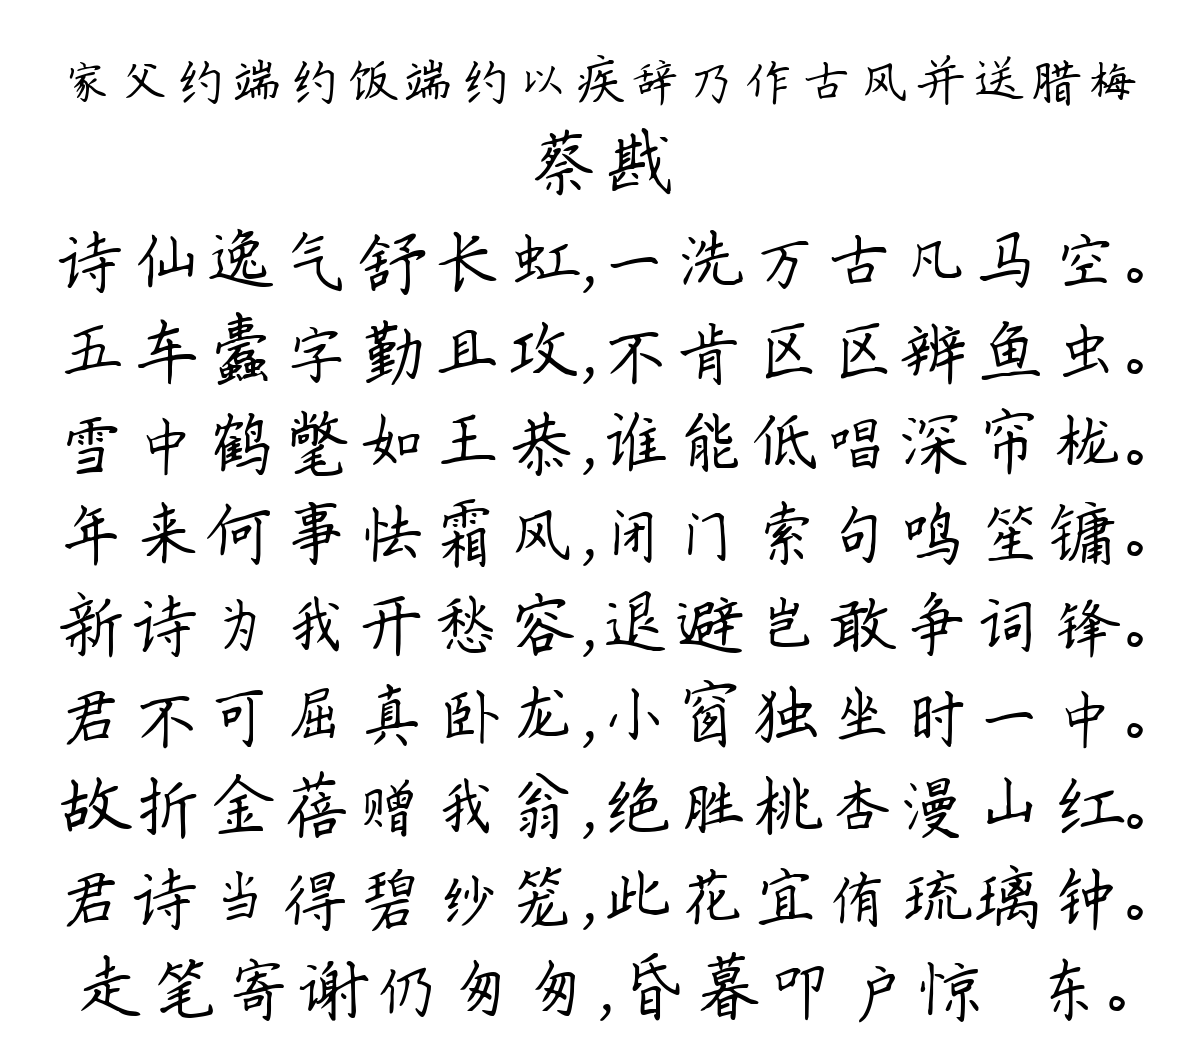 家父约端约饭端约以疾辞乃作古风并送腊梅
蔡戡
诗仙逸气舒长虹,一洗万古凡马空。
五车蠹字勤且攻,不肯区区辨鱼虫。
雪中鹤氅如王恭,谁能低唱深帘栊。
年来何事怯霜风,闭门索句鸣笙镛。
新诗为我开愁容,退避岂敢争词锋。
君不可屈真卧龙,小窗独坐时一中。
故折金蓓赠我翁,绝胜桃杏漫山红。
君诗当得碧纱笼,此花宜侑琉璃钟。
走笔寄谢仍匆匆,昏暮叩户惊 东。